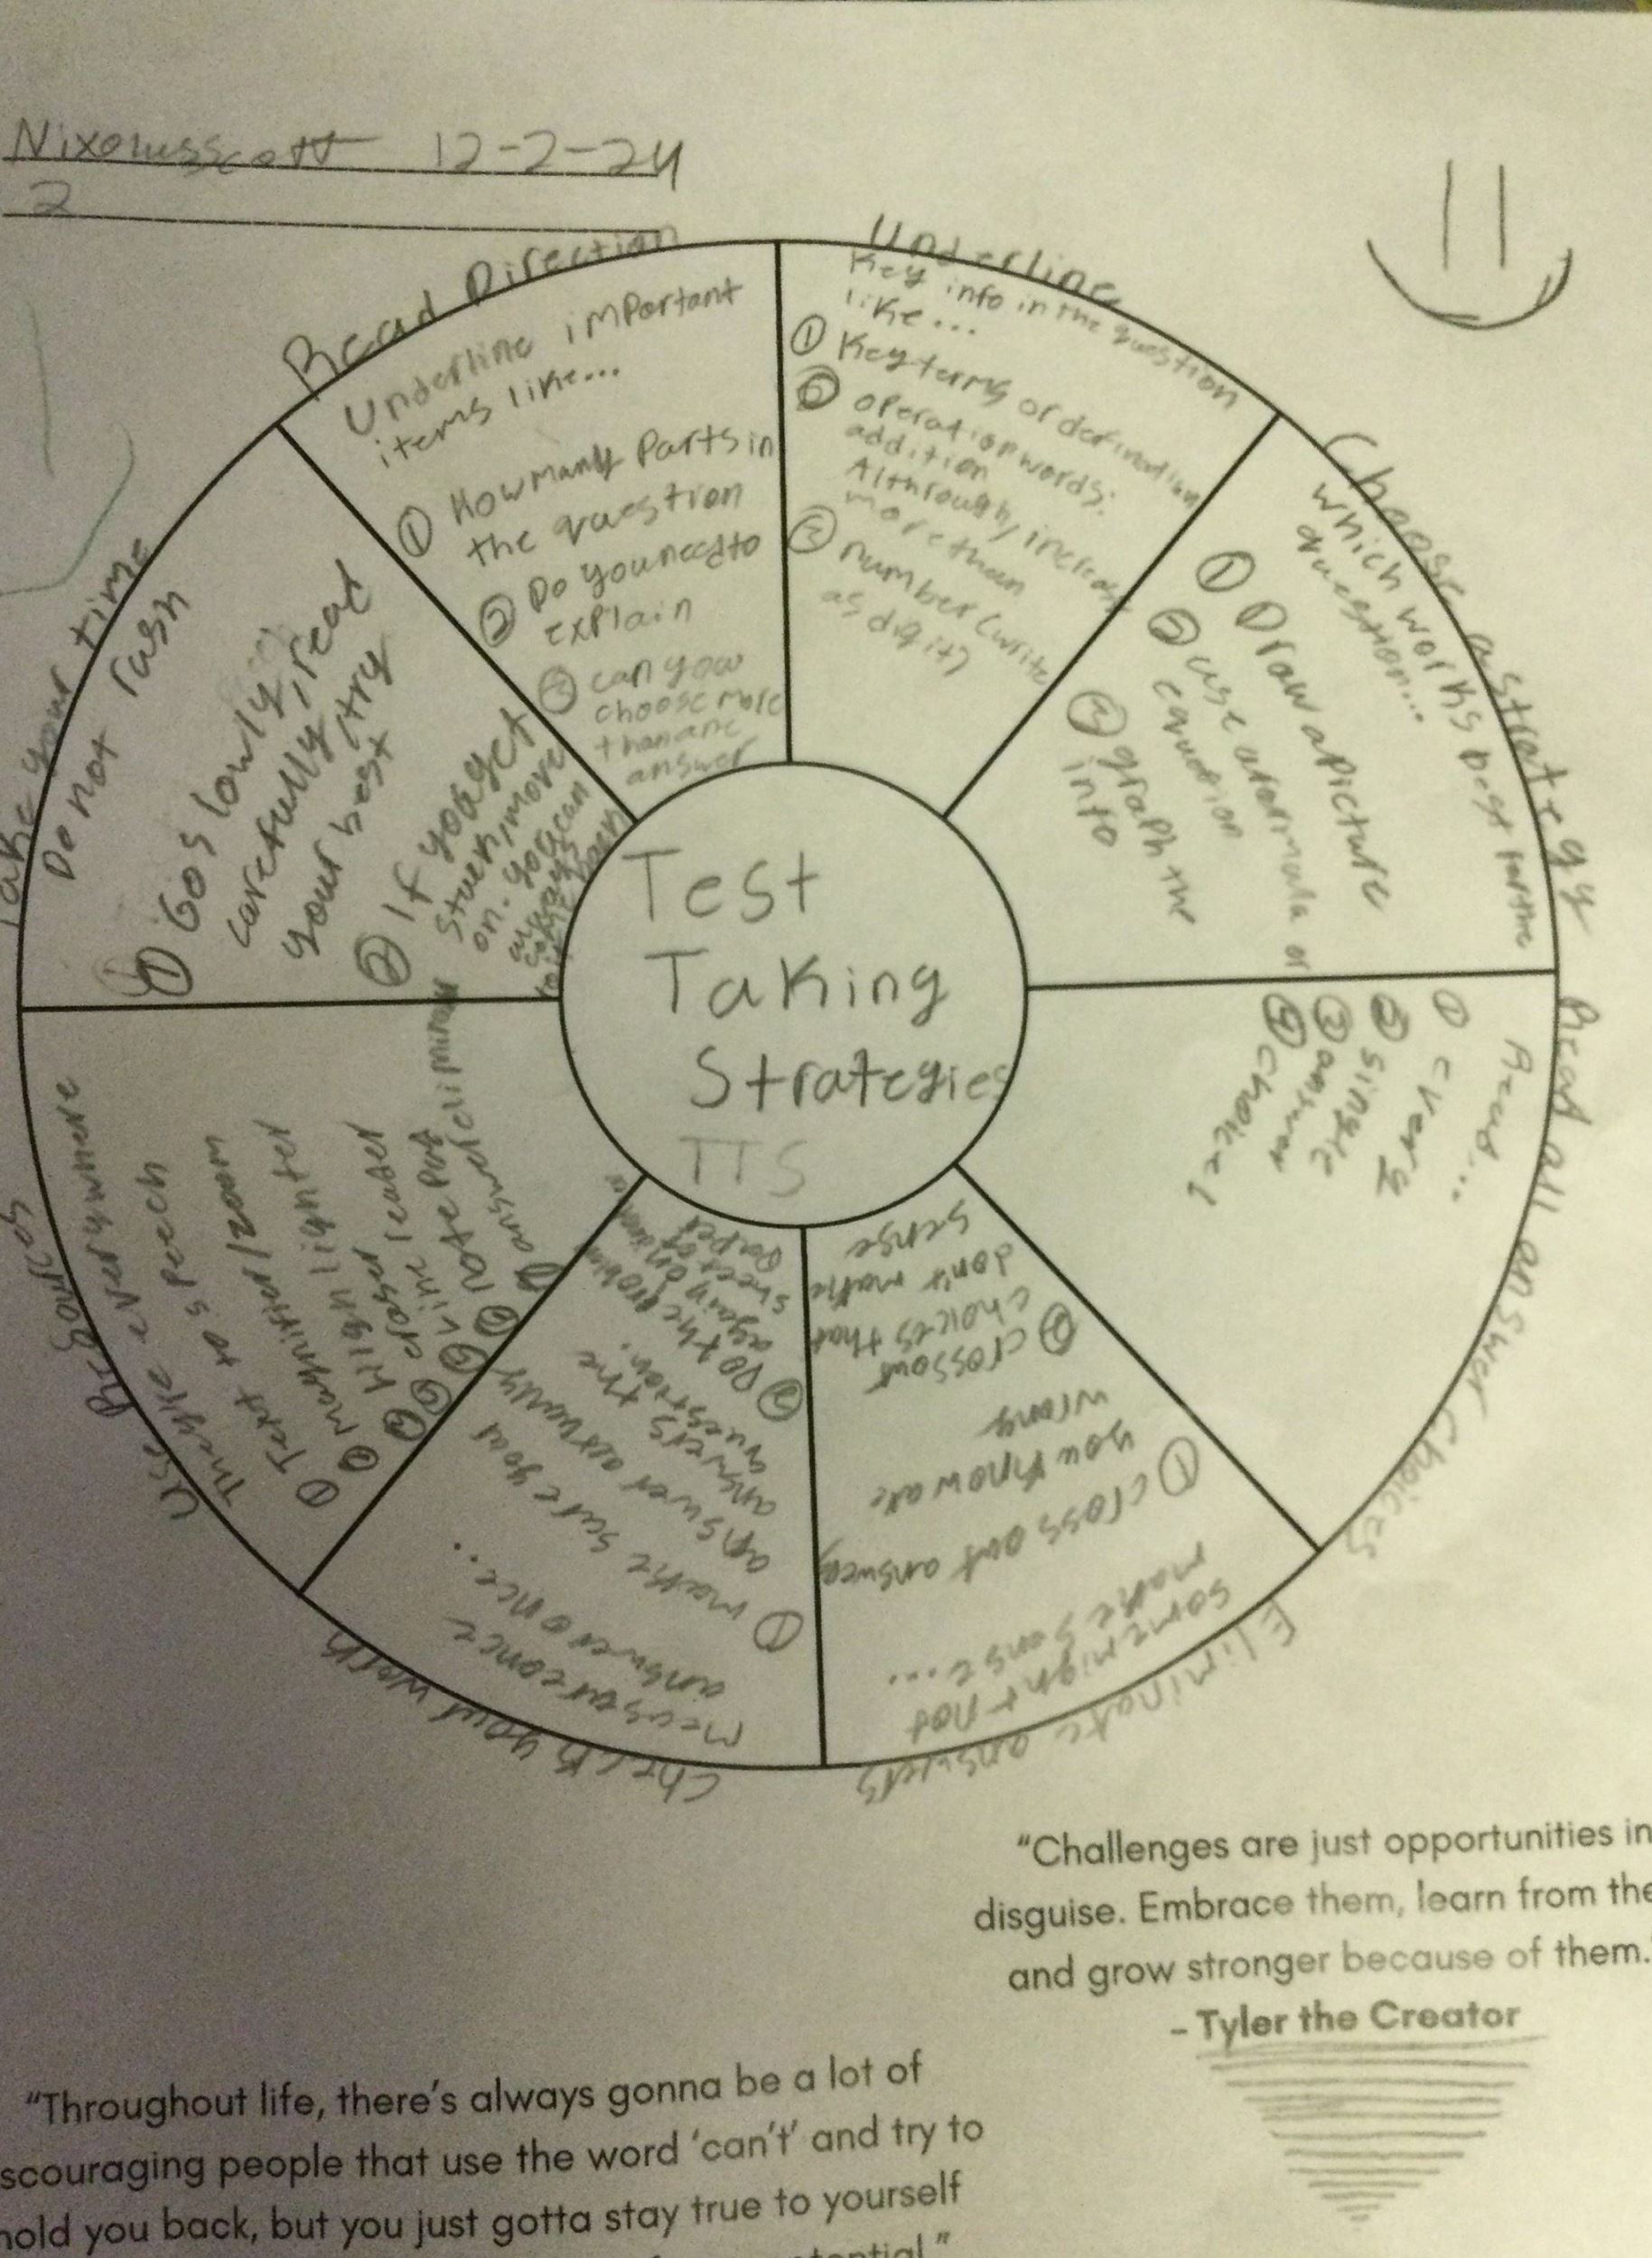 Nixon usscott 12-2-24
2
Read Direction
Underline important
items like...
① How many Parts in
the question
② Do you need to
explain
③ can you
choose more
than one
answer
Underline
Key info in the question
like...
① Key terms or definition
② operation words:
addition
increase
more than
③ number (write
as digit)
Choose a strategy
which works best for the
question...
① Draw a picture
② use a formula or
equation
③ graph the
info
Read all answer choices
Read...
① every
② single
③ answer
④ choice!
Eliminate answers
some might not
make sense...
① cross out answers
you know are
wrong
② cross out
choices that
don't make
sense
Check your work
measure once
answer once...
① make sure your
answer actually
answers the
question.
② Do the problem
again on
sheet of
paper
Use Resources
They're everywhere
① Text to speech
② magnifier/zoom
③ highlighter
④ eraser
⑤ line reader
⑥ note pad
⑦ answer eliminator
Take your time
Do not rush
① Go slowly, read
carefully, try
your best
② If you get
stuck, move
on. you can
always
come back
to it
Test
Taking
Strategies
TTS
“Challenges are just opportunities in
disguise. Embrace them, learn from the
and grow stronger because of them.”
– Tyler the Creator
“Throughout life, there’s always gonna be a lot of
scouraging people that use the word ‘can’t’ and try to
hold you back, but you just gotta stay true to yourself